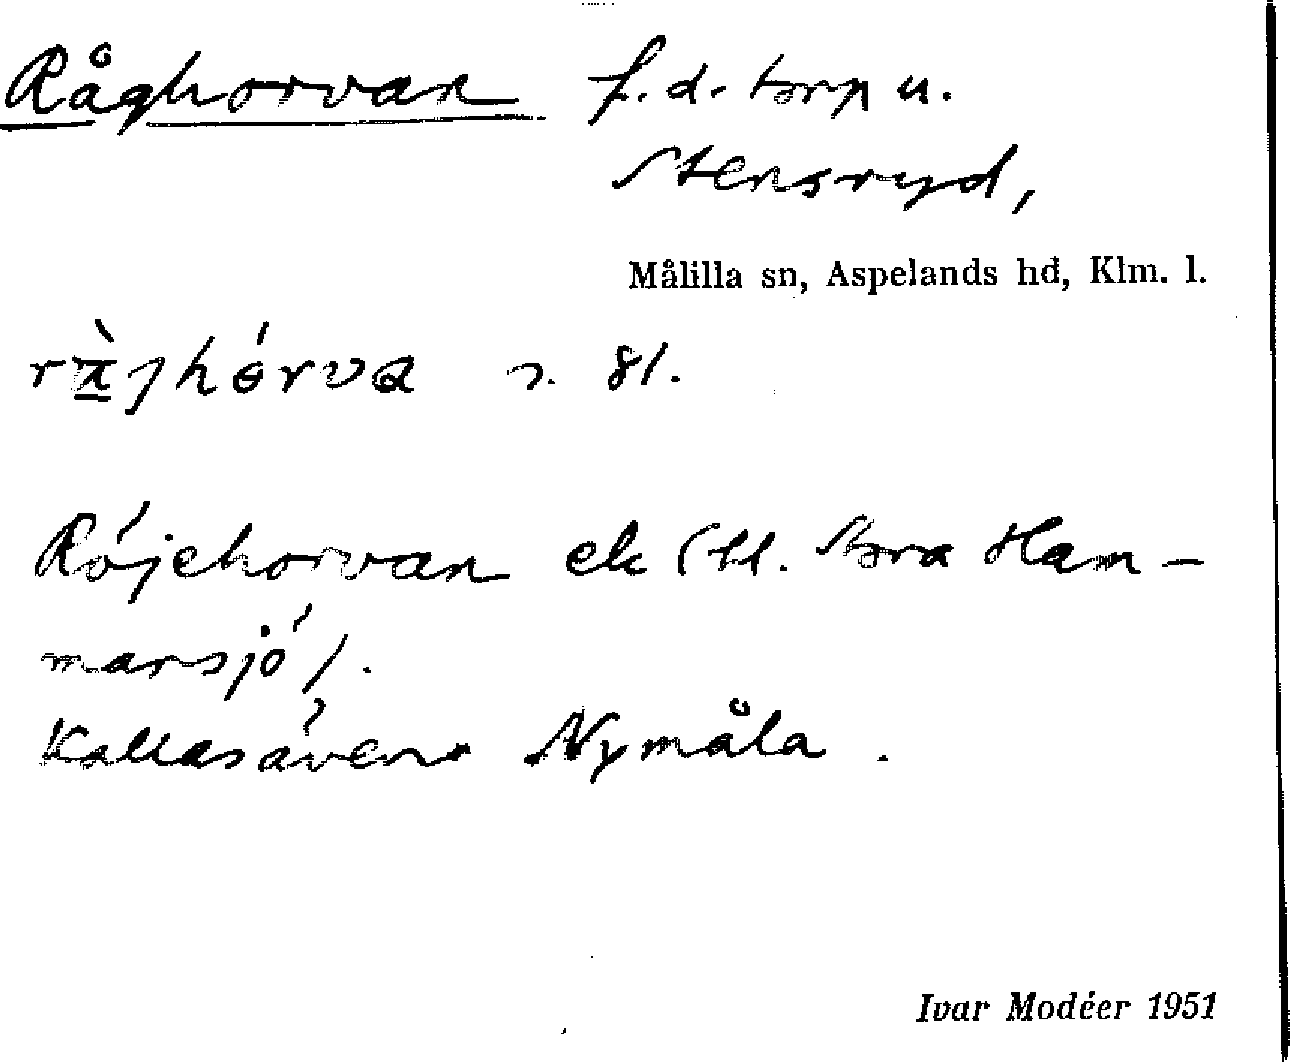 Råghorvan f.d. torp u.
Stensryd,
Målilla sn, Aspelands hd, Klm. l.
s. 81.
Röjehorvan ek (tl. Stora Ham-
marsjö).
Kallasävens Nymåla.
Ivar Modéer 1951